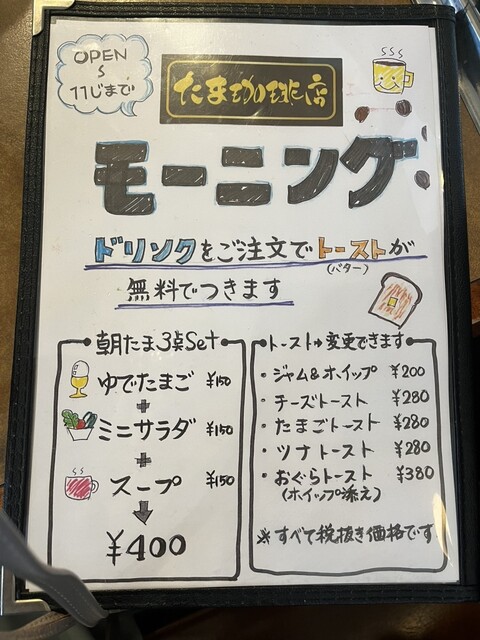 OPEN
〜
11じまで
たま珈琲店
モーニング
ドリンクをご注文でトーストが
(バター)
無料でつきます
朝たま3点Set
ゆでたまご ¥150
+
ミニサラダ ¥150
+
スープ ¥150
¥400
トースト→変更できます
・ジャム&ホイップ ¥200
・チーズトースト ¥280
・たまごトースト ¥280
・ツナトースト ¥280
・おぐらトースト ¥380
(ホイップ添え)
※すべて税抜き価格です